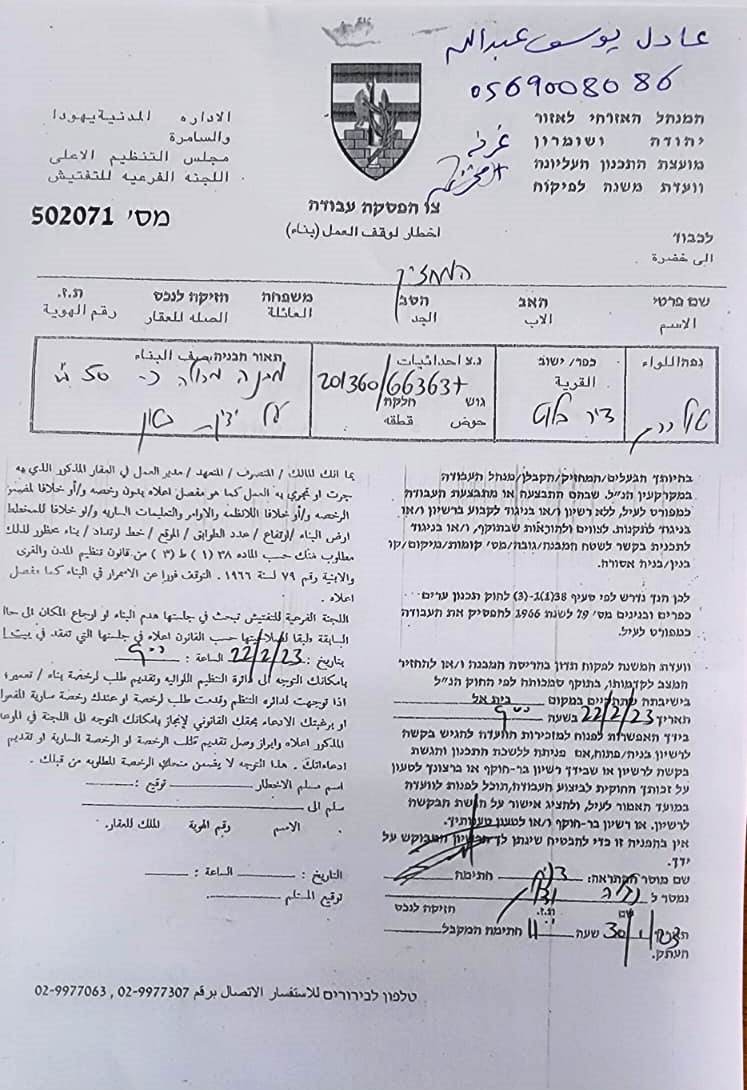 عادل يوسف عبدالله
0569008086
המנהל האזרחי לאזור
יהודה ושומרון
מועצת התכנון העליונה
וועדת משנה לפיקוח
غرفة
الادارة المدنية يهودا
والسامرة
مجلس التنظيم الاعلى
اللجنة الفرعيه للتفتيش
צו הפסקה עבודה
اخطار لوقف العمل (بناء)
מס' 502071
לכבוד
الى حضرة
המחזיק
שם פרטי האב הסב משפחה חזיקה לנכס ת.ז.
الاسم الاب الجد العائلة الصله للعقار رقم الهوية
נפה/اللواء כפר/ ישוב נ.צ احداثيات תאור הבניה/وصف البناء
القرية
201360/663637
גוש חלקה
حوض قطعه
דיר בלוט
מבנה מגולה כ- 50 מ"ר
בהיותך הבעלים/המחזיק/הקבלן/מנהל העבודה
במקרקעין הנ"ל. שבהם התבצעה או מתבצעת העבודה
כמפורט לעיל, ללא רשיון ו/או בניגוד לקבוע ברשיון ו/או
בניגוד לתקנות. לצווים ולהוראות שבתוקף, ו/או בניגוד
לתכנית בקשר לשטח המבנה/גובה/מס' קומות/מיקום/קו
בנין/בניה אסורה.
לכן הנך נדרש לפי סעיף 38(1)-(3) לחוק תכנון ערים
כפרים ובנינים מס' 79 לשנת 1966 להפסיק את העבודה
כמפורט לעיל.
וועדת המשנה לפקוח תדון בהריסת המבנה ו/או להחזיר
המצב לקדמותו, בתוקף סמכותה לפי החוק הנ"ל
בישיבתה שתתקיים במקום בית אל
תאריך 22/2/23 בשעה 9:00
בידך האפשרות לפנות למזכירות הוועדה להגיש בקשה
לרשיון בניה/פתוח, אם פניתה ללשכת התכנון והגשת
בקשה לרשיון או שבידך רשיון בר-חוקף או ברצונך לטעון
על זכותך החוקית לביצוע העבודה, תוכל לפנות לוועדה
במועד האמור לעיל, ולהציג אישור על הגשת הבקשה
לרשיון. או רשיון בר-חוקף ו/או לטעון טענותיך.
אין בהפניה זו כדי להבטיח שינתן לך הרשיון המבוקש על
ידך.
שם מוסר ההתראה: חתימה
נמסר ל
שם ת.ז. חזיקה לנכס
תאריך 30/1/23 שעה 11 חתימת המקבל
העתק.
بما انك المالك / المتصرف / المتعهد / مدير العمل في العقار المذكور الذي به
جرت او تجري به العمل كما هو مفصل اعلاه بدون رخصه و/أو خلافا لمضمون
الرخصه و/أو خلافا للانظمه والاوامر والتعليمات الساريه و/أو خلافا للمخطط
ارض البناء /ارتفاع / عدد الطوابق / الموقع / خط ارتداد / بناء محظور لذلك
مطلوب منك حسب الماده ٣٨ (١) ط (٣) من قانون تنظيم المدن والقرى
والابنية رقم ٧٩ لسنة ١٩٦٦. التوقف فورا عن الاستمرار في البناء كما مفصل
اعلاه .
اللجنة الفرعية للتفتيش تبحث في جلستها هدم البناء او ارجاع المكان الى حاله
السابقة طبقا لصلاحيتها حسب القانون اعلاه في جلستها التي تعقد في بيت ا
بتاريخ : 22/2/23 الساعة : 9:00
بامكانك التوجه الى دائرة التنظيم اللوائيه وتقديم طلب لرخصة بناء / تعمير،
اذا توجهت لدائره التنظم وقدمت طلب لرخصة او عندك رخصة سارية المفعول
او برغبتك الادعاء بحقك القانوني لإنجاز بامكانك التوجه الى اللجنة في الموعد
المذكور اعلاه وابراز وصل تقديم طلب الرخصة او الرخصة السارية او تقديم
ادعاءاتك . هذا التوجه لا يضمن منحك الرخصة المطلوبه من قبلك .
اسم مسلم الاخطار توقيع :
سلم الى
الاسم رقم الهوية الملك للعقار.
التاريخ : الساعة :
توقيع المستلم
טלפון לבירורים للاستفسار الاتصال برقم 02-9977307 , 02-9977063